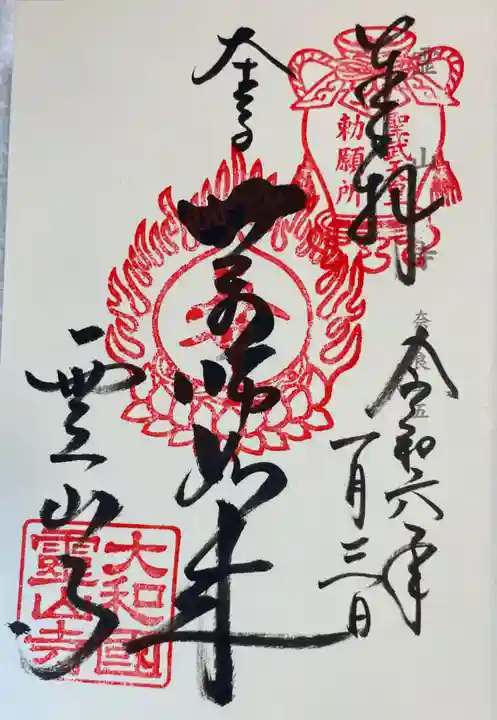 奉拝
聖武天皇
勅願所
令和六年
一月三日
薬師如来
霊山寺
大和國
靈山寺